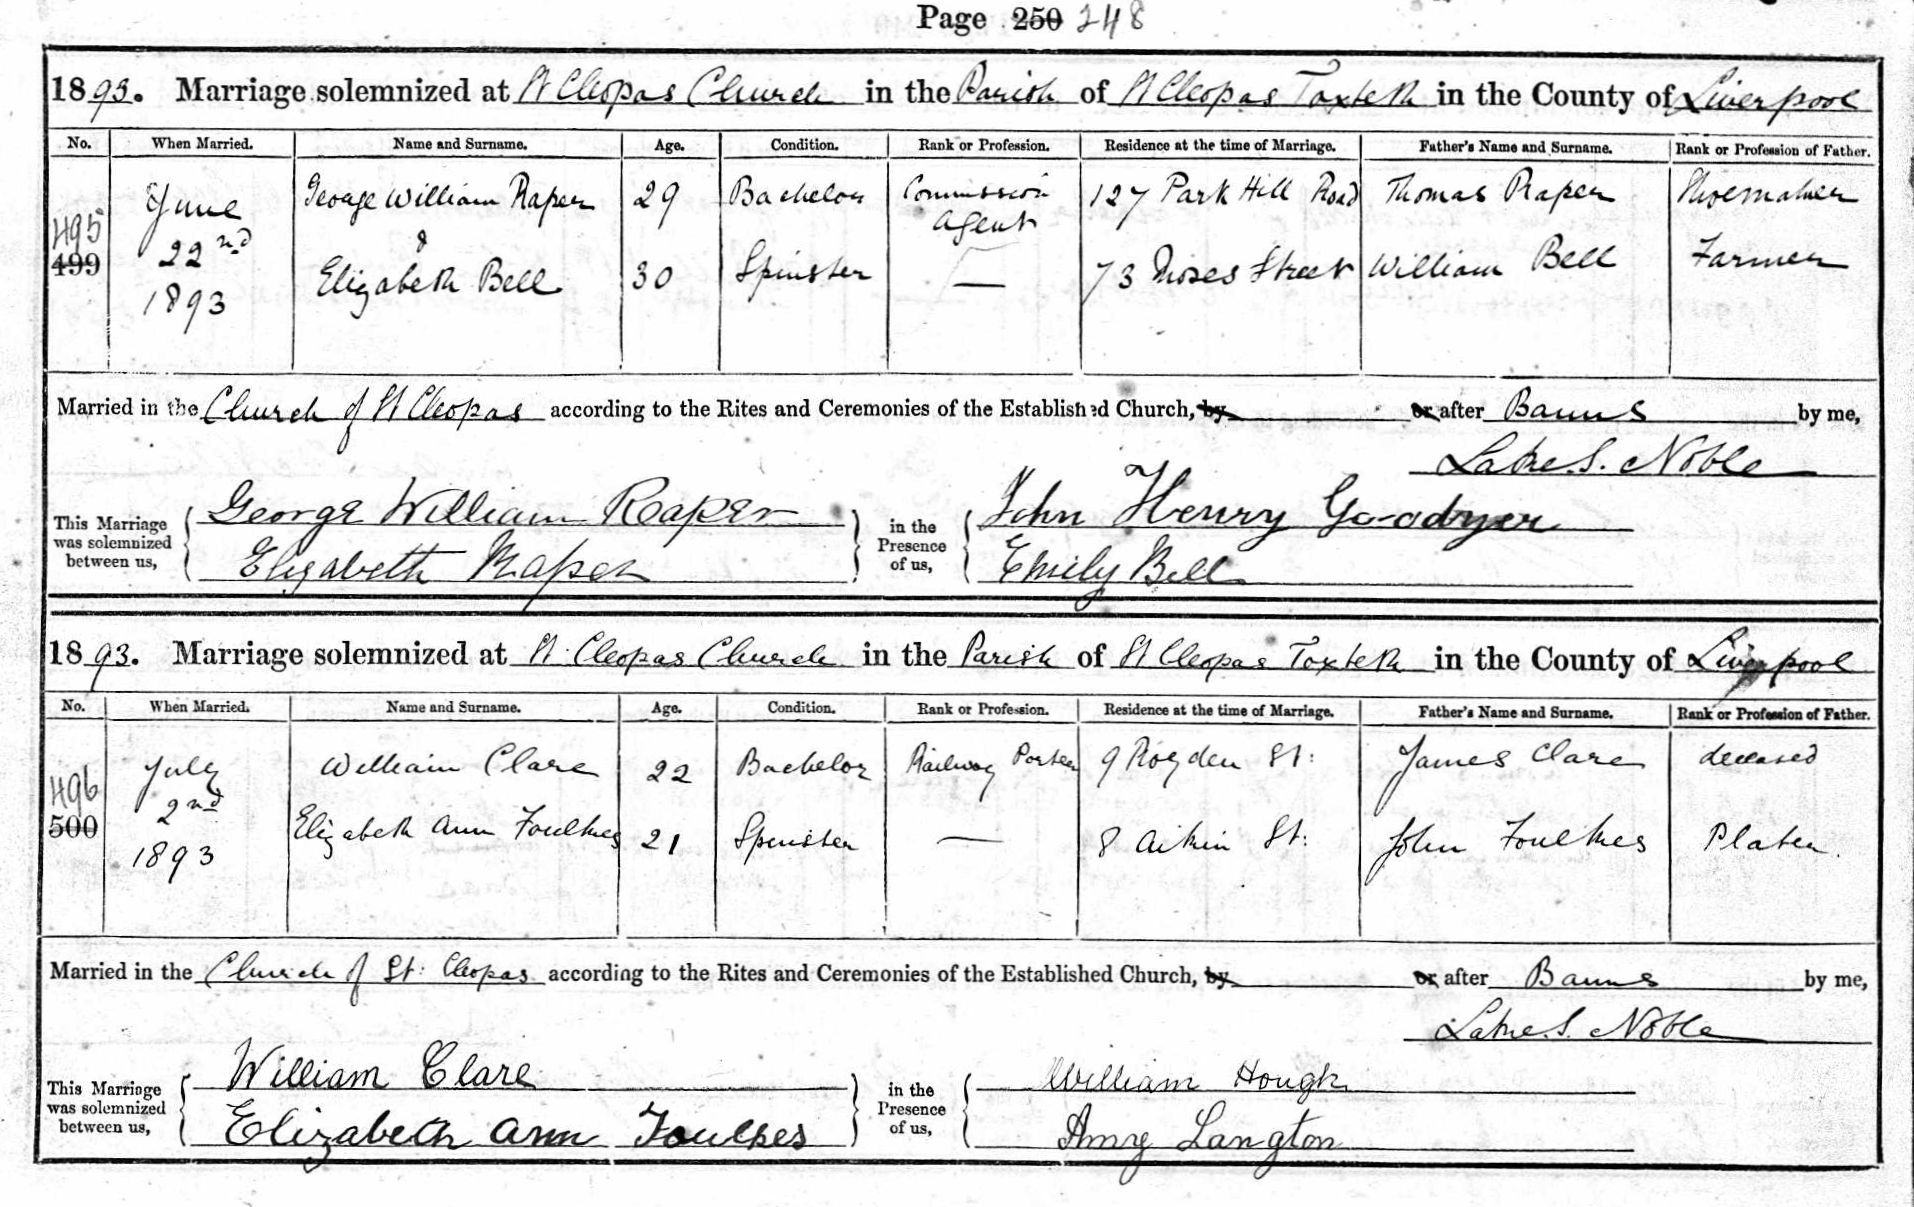 Page 250 248
1893. Marriage solemnized at St Cleopas Church in the Parish of St Cleopas Toxteth in the County of Liverpool
No. When Married. Name and Surname. Age. Condition. Rank or Profession. Residence at the time of Marriage. Father's Name and Surname. Rank or Profession of Father.
495 499 June 22nd 1893 George William Raper & 29 Bachelor Commission Agent 127 Park Hill Road Thomas Raper Shoemaker
Elizabeth Bell 30 Spinster — 73 Moses Street William Bell Farmer
Married in the Church of St Cleopas according to the Rites and Ceremonies of the Established Church, by or after Banns by me,
Lake. S. Noble
This Marriage was solemnized between us, George William Raper in the Presence of us, John Henry Goodyer
Elizabeth Raper Emily Bell
1893. Marriage solemnized at St Cleopas Church in the Parish of St Cleopas Toxteth in the County of Liverpool
No. When Married. Name and Surname. Age. Condition. Rank or Profession. Residence at the time of Marriage. Father's Name and Surname. Rank or Profession of Father.
496 500 July 2nd 1893 William Clare 22 Bachelor Railway Porter 9 St: James Clare deceased
Elizabeth Ann Foulkes 21 Spinster — 8 Aikin St: John Foulkes Plater.
Married in the Church of St: Cleopas according to the Rites and Ceremonies of the Established Church, by or after Banns by me,
Lake S. Noble
This Marriage was solemnized between us, William Clare in the Presence of us, William Hough
Elizabeth Ann Foulkes Amy Langton